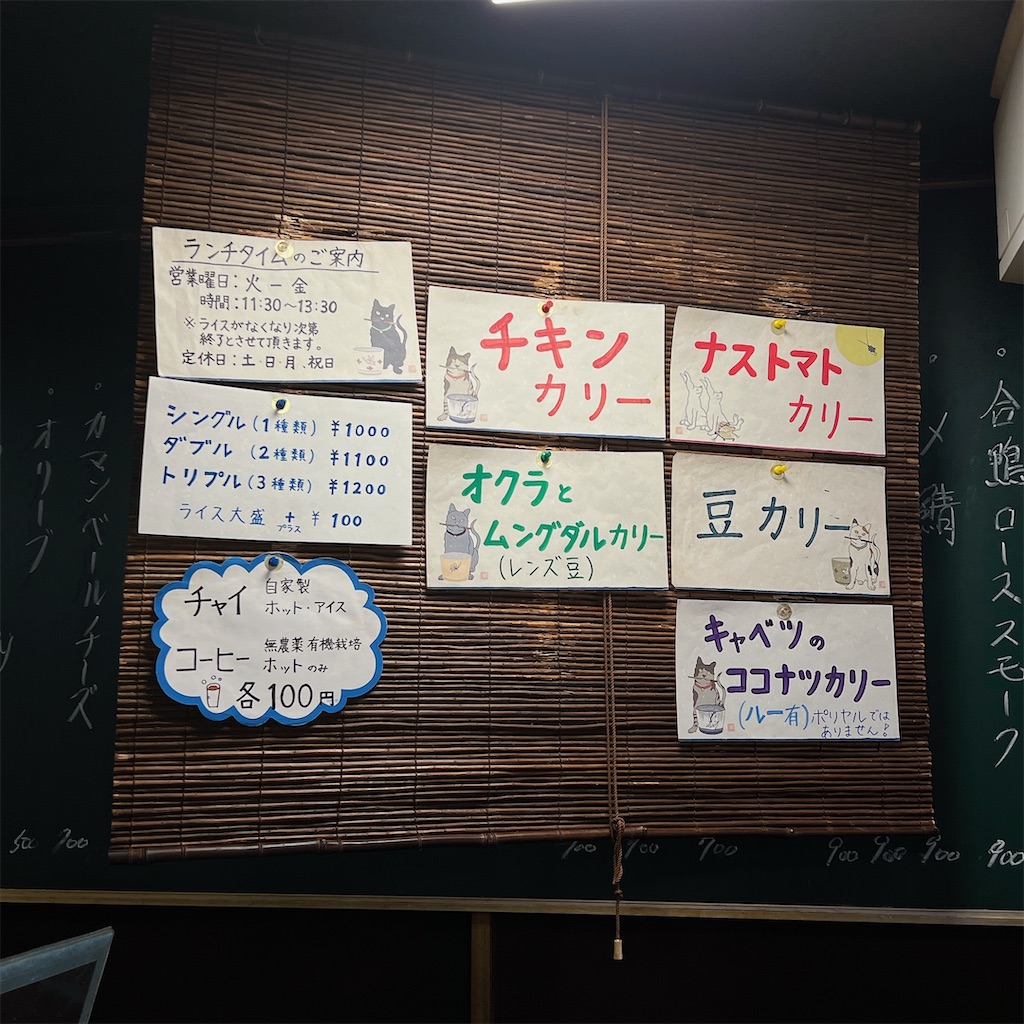 ランチタイムのご案内
営業曜日：火ー金
時間：11:30〜13:30
※ライスがなくなり次第
終了とさせて頂きます。
定休日：土・日・月、祝日
シングル(1種類) ¥1000
ダブル (2種類) ¥1100
トリプル(3種類) ¥1200
ライス大盛 + ¥100
プラス
チャイ 自家製
ホット・アイス
コーヒー 無農薬有機栽培
ホットのみ
各100円
チキン
カリー
ナストマト
カリー
オクラと
ムングダルカリー
(レンズ豆)
豆カリー
キャベツの
ココナツカリー
(ルー有)ポリヤルでは
ありません!
合鴨ローススモーク
〆鯖
カマンベールチーズ
オリーブ
500 700
700 700
900 900 900 900